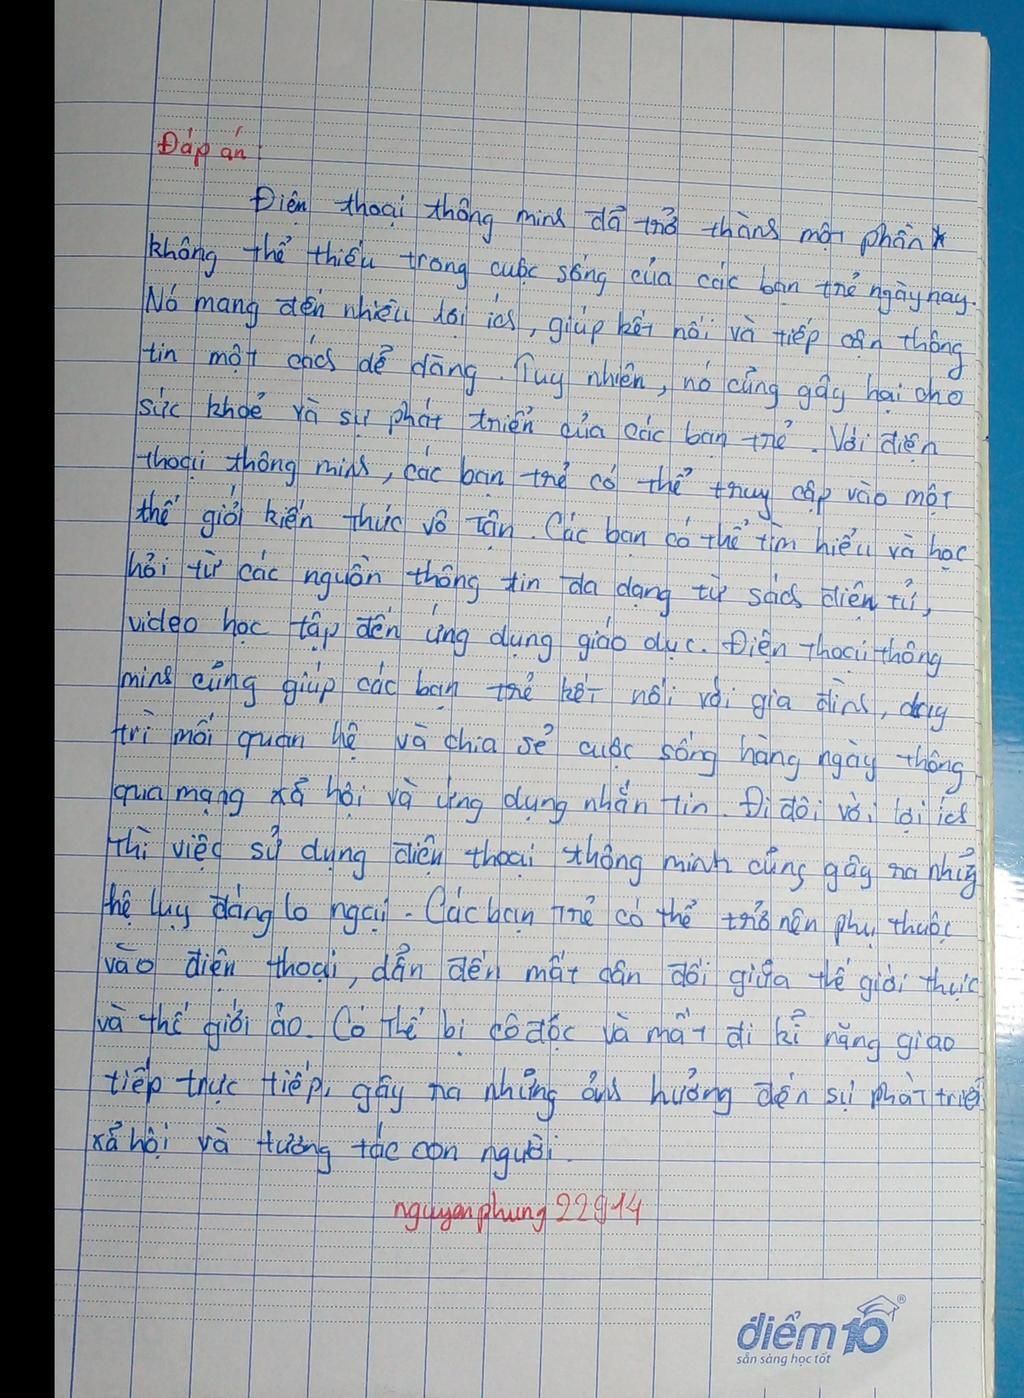 Đáp án:
Điện thoại thông minh đã trở thành một phần
không thể thiếu trong cuộc sống của các bạn trẻ ngày nay.
Nó mang đến nhiều lợi ích, giúp kết nối và tiếp cận thông
tin một cách dễ dàng. Tuy nhiên, nó cũng gây hại cho
sức khoẻ và sự phát triển của các bạn trẻ. Với điện
thoại thông minh, các bạn trẻ có thể truy cập vào một
thế giới kiến thức vô tận. Các bạn có thể tìm hiểu và học
hỏi từ các nguồn thông tin đa dạng từ sách điện tử,
video học tập đến ứng dụng giáo dục. Điện thoại thông
minh cũng giúp các bạn trẻ kết nối với gia đình, duy
trì mối quan hệ và chia sẻ cuộc sống hàng ngày thông
qua mạng xã hội và ứng dụng nhắn tin. Đi đôi với lợi ích
thì việc sử dụng điện thoại thông minh cũng gây ra những
hệ luỵ đáng lo ngại. Các bạn trẻ có thể trở nên phụ thuộc
vào điện thoại, dẫn đến mất cân đối giữa thế giới thực
và thế giới ảo. Có thể bị cô độc và mất đi kĩ năng giao
tiếp trực tiếp, gây ra những ảnh hưởng đến sự phát triển
xã hội và tương tác con người.
nguyenphung22914
điểm10
sẵn sàng học tốt